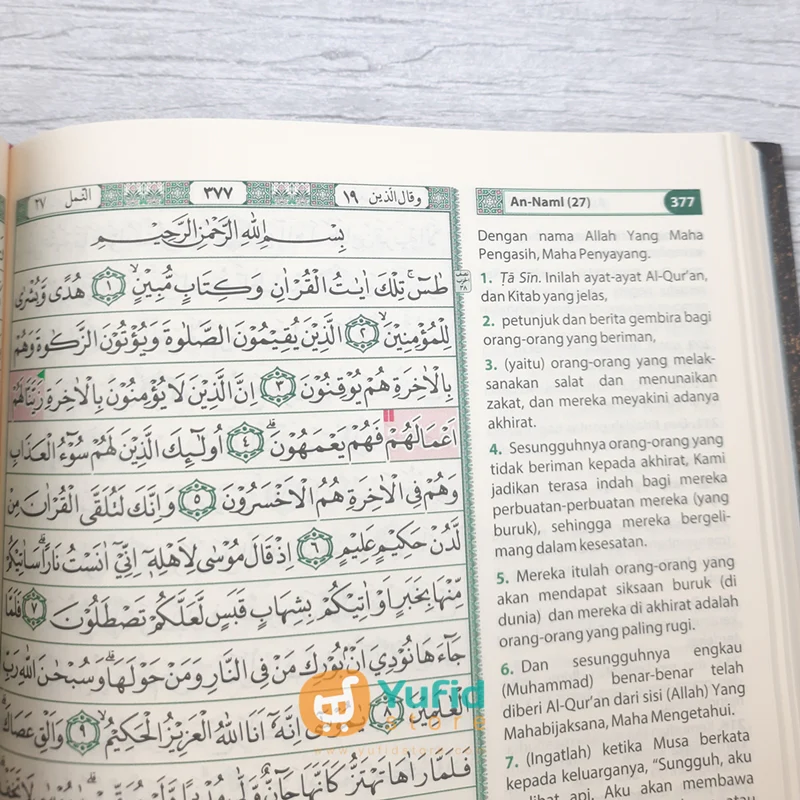 وقال الذين ١٩
٣٧٧
النمل ٢٧
بِسْمِ اللّٰهِ الرَّحْمٰنِ الرَّحِيْمِ
طٰسۤ ۚ تِلْكَ اٰيٰتُ الْقُرْاٰنِ وَكِتَابٍ مُّبِيْنٍ ۙ ١ هُدًى وَّبُشْرٰى
لِلْمُؤْمِنِيْنَ ۙ ٢ الَّذِيْنَ يُقِيْمُوْنَ الصَّلٰوةَ وَيُؤْتُوْنَ الزَّكٰوةَ وَهُمْ
بِالْاٰخِرَةِ هُمْ يُوْقِنُوْنَ ٣ اِنَّ الَّذِيْنَ لَا يُؤْمِنُوْنَ بِالْاٰخِرَةِ زَيَّنَّا لَهُمْ
اَعْمَالَهُمْ فَهُمْ يَعْمَهُوْنَ ۗ ٤ اُولٰۤىِٕكَ الَّذِيْنَ لَهُمْ سُوْۤءُ الْعَذَابِ
وَهُمْ فِى الْاٰخِرَةِ هُمُ الْاَخْسَرُوْنَ ٥ وَاِنَّكَ لَتُلَقَّى الْقُرْاٰنَ مِنْ
لَّدُنْ حَكِيْمٍ عَلِيْمٍ ٦ اِذْ قَالَ مُوْسٰى لِاَهْلِهٖٓ اِنِّيْٓ اٰنَسْتُ نَارًاۗ سَاٰتِيْكُمْ
مِّنْهَا بِخَبَرٍ اَوْ اٰتِيْكُمْ بِشِهَابٍ قَبَسٍ لَّعَلَّكُمْ تَصْطَلُوْنَ ٧ فَلَمَّا
جَاۤءَهَا نُوْدِيَ اَنْۢ بُوْرِكَ مَنْ فِى النَّارِ وَمَنْ حَوْلَهَاۗ وَسُبْحٰنَ اللّٰهِ رَبِّ
الْعٰلَمِيْنَ ٨ يٰمُوْسٰٓى اِنَّهٗٓ اَنَا اللّٰهُ الْعَزِيْزُ الْحَكِيْمُ ۙ ٩ وَاَلْقِ عَصَاكَ
فَلَمَّا رَاٰهَا تَهْتَزُّ كَاَنَّهَا جَاۤنٌّ وَّلّٰى
An-Naml (27) 377
Dengan nama Allah Yang Maha
Pengasih, Maha Penyayang.
1. Ṭā Sīn. Inilah ayat-ayat Al-Qur'an,
dan Kitab yang jelas,
2. petunjuk dan berita gembira bagi
orang-orang yang beriman,
3. (yaitu) orang-orang yang melak-
sanakan salat dan menunaikan
zakat, dan mereka meyakini adanya
akhirat.
4. Sesungguhnya orang-orang yang
tidak beriman kepada akhirat, Kami
jadikan terasa indah bagi mereka
perbuatan-perbuatan mereka (yang
buruk), sehingga mereka bergeli-
mang dalam kesesatan.
5. Mereka itulah orang-orang yang
akan mendapat siksaan buruk (di
dunia) dan mereka di akhirat adalah
orang-orang yang paling rugi.
6. Dan sesungguhnya engkau
(Muhammad) benar-benar telah
diberi Al-Qur'an dari sisi (Allah) Yang
Mahabijaksana, Maha Mengetahui.
7. (Ingatlah) ketika Musa berkata
kepada keluarganya, "Sungguh, aku
melihat api. Aku akan membawa
Yufid
store
www.yufidstore.com